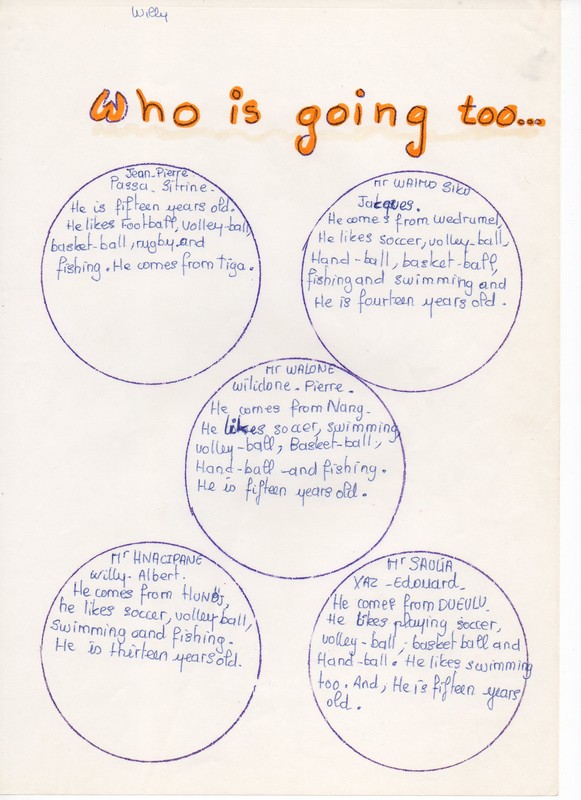 Willy
Who is going too...
Jean-Pierre
Passa-Sitrine-
He is fifteen years old.
He likes Football, volley-ball,
basket-ball, rugby and
fishing. He comes from Tiga.
Mr WAIMO SIKO
Jacques.
He comes from wedrumel,
He likes soccer, volley-ball,
Hand-ball, basket-ball,
fishing and swimming and
He is fourteen years old.
Mr WALONE
Wilidone-Pierre.
He comes from Nang-
He likes soccer, swimming,
volley-ball, Basket-ball,
Hand-ball-and fishing.
He is fifteen years old.
Mr HNACIPANE
Willy-Albert.
He comes from
he likes soccer, volley ball,
swimming oand fishing-
He is thirteen years old.
Mr SAULIA
YAZ-Edouard-
He comes from DUEULU
He likes playing soccer,
volley-ball, basket ball and
Hand-ball. He likes swimming
too. And, He is fifteen years
old.